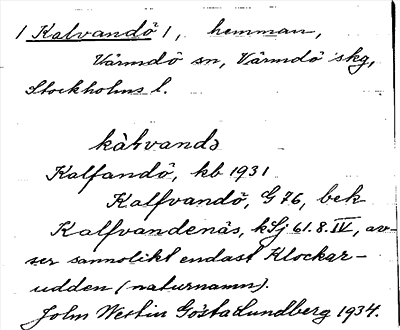 / Kalvandö /, hemman,
Värmdö sn, Värmdö skg,
Stockholms l.
kàlvandɔ
Kalfandö, kb 1931
Kalfvandö, G 76, bek
Kalfvandenäs, kSj 61.8.IV, av-
ser sannolikt endast Klockar-
udden (naturnamn).
John Westin Gösta Lundberg 1934.